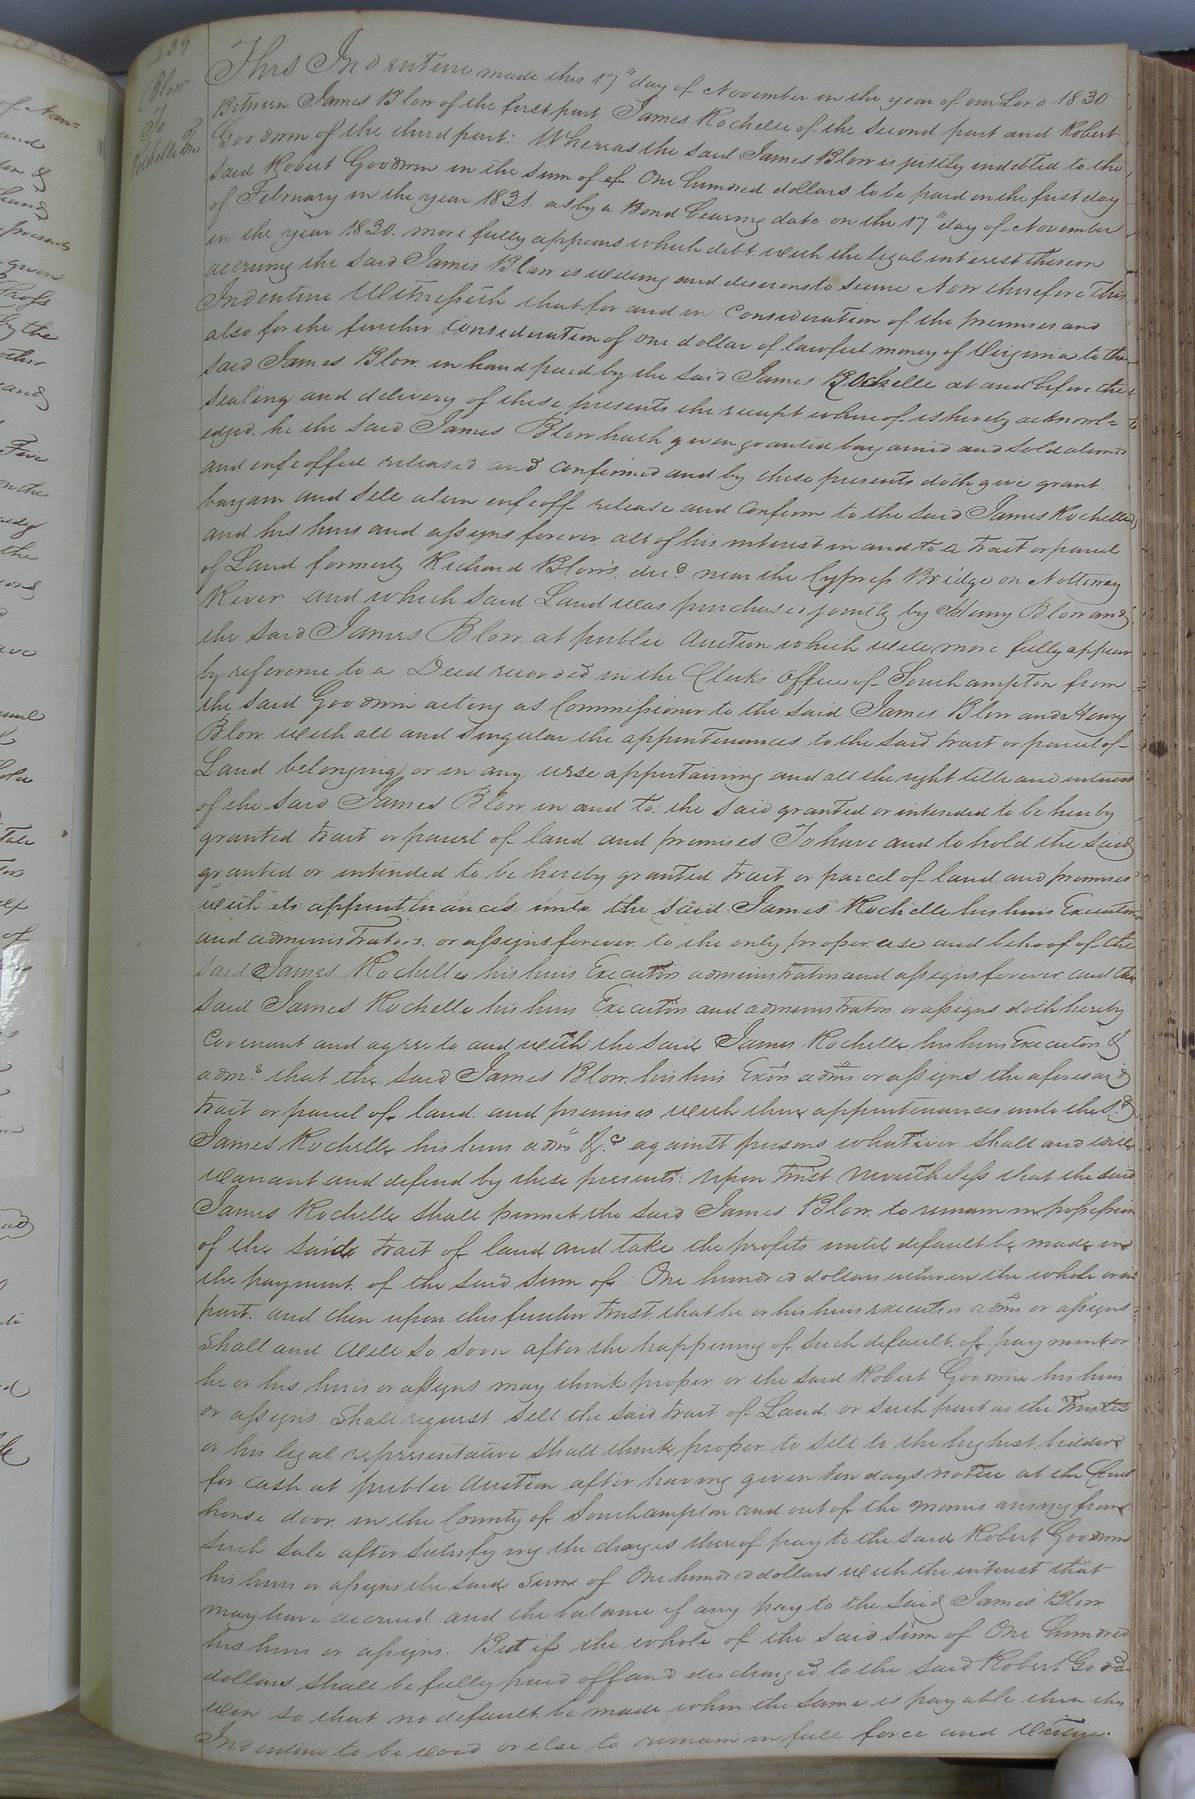 439
Blow
To
Rochelle &
This Indenture made this 17" day of November in the year of our Lord 1830
Between James Blow of the first part James Rochelle of the second part and Robert
Goodwin of the third part: Whereas the said James Blow is justly indebted to the
said Robert Goodwin in the sum of of One hundred dollars to be paid on the first day
of February in the year 1831. as by a Bond bearing date on the 17" day of November
in the year 1830. more fully appears which debt with the legal interest thereon
accruing the said James Blow is willing and desirous to secure Now therefore This
Indenture Witnesseth that for and in Consideration of the premises and
also for the further Consideration of one dollar of lawful money of Virginia to the
said James Blow in hand paid by the said James Rochelle at and before the
sealing and delivery of these presents the receipt whereof is hereby acknowl=
edged. he the said James Blow hath given granted bargained and sold aliened
and enfeoffed released and Confirmed and by these presents doth give grant
bargain and sell alien enfeoff release and Confirm to the said James Rochelle
and his heirs and assigns forever all of his interest in and to a tract or parcel
of Land formerly Richard Blow's decd. near the Cypress Bridge on Nottoway
River and which said Land was purchased jointly by Henry Blow and
the said James Blow at public Auction which will more fully appear
by reference to a Deed recorded in the Clerk's Office of Southampton from
the said Goodwin acting as Commissioner to the said James Blow and Henry
Blow with all and singular the appurtenances to the said tract or parcel of
Land belonging or in any wise appertaining and all the right title and interest
of the said James Blow in and to the said granted or intended to be hereby
granted tract or parcel of land and premises To have and to hold the said
granted or intended to be hereby granted tract or parcel of land and premises
with its appurtenances unto the said James Rochelle his heirs Executors
and administrators. or assigns forever to the only proper use and behoof of the
said James Rochelle his heirs Executors administrators and assigns forever. and the
said James Rochelle his heirs Executors and administrators or assigns doth hereby
Covenant and agree to and with the said James Rochelle his heirs Executors &
adm.s that the said James Blow his heirs Exors adms or assigns the aforesaid
tract or parcel of land and premises with their appurtenances unto the sd
James Rochelle his heirs adms &c. against persons whatever shall and will
warrant and defend by these presents: upon trust nevertheless that the said
James Rochelle shall permit the said James Blow to remain in possession
of the said tract of land and take the profits until default be made in
the payment of the said sum of One hundred dollars either in the whole or in
part. and then upon this further trust that he or his heirs executors adms or assigns
shall and will so soon after the happening of such default of payment or
he or his heirs or assigns may think proper or the said Robert Goodwin his heirs
or assigns shall request sell the said tract of Land. or such part as the Trustee
or his legal representative shall think proper to sell to the highest bidder
for cash at public Auction after having given ten days notice at the Court
house door in the County of Southampton and out of the monies arising from
such sale after satisfying the charges thereof pay to the said Robert Goodwin
his heirs or assigns the said sum of One hundred dollars with the interest that
may have accrued and the balance if any pay to the said James Blow
his heirs or assigns. But if the whole of the said sum of One hundred
dollars shall be fully paid off and discharged to the said Robert Good
win so that no default be made when the same is payable then this
Indenture to be void or else to remain in full force and virtue.